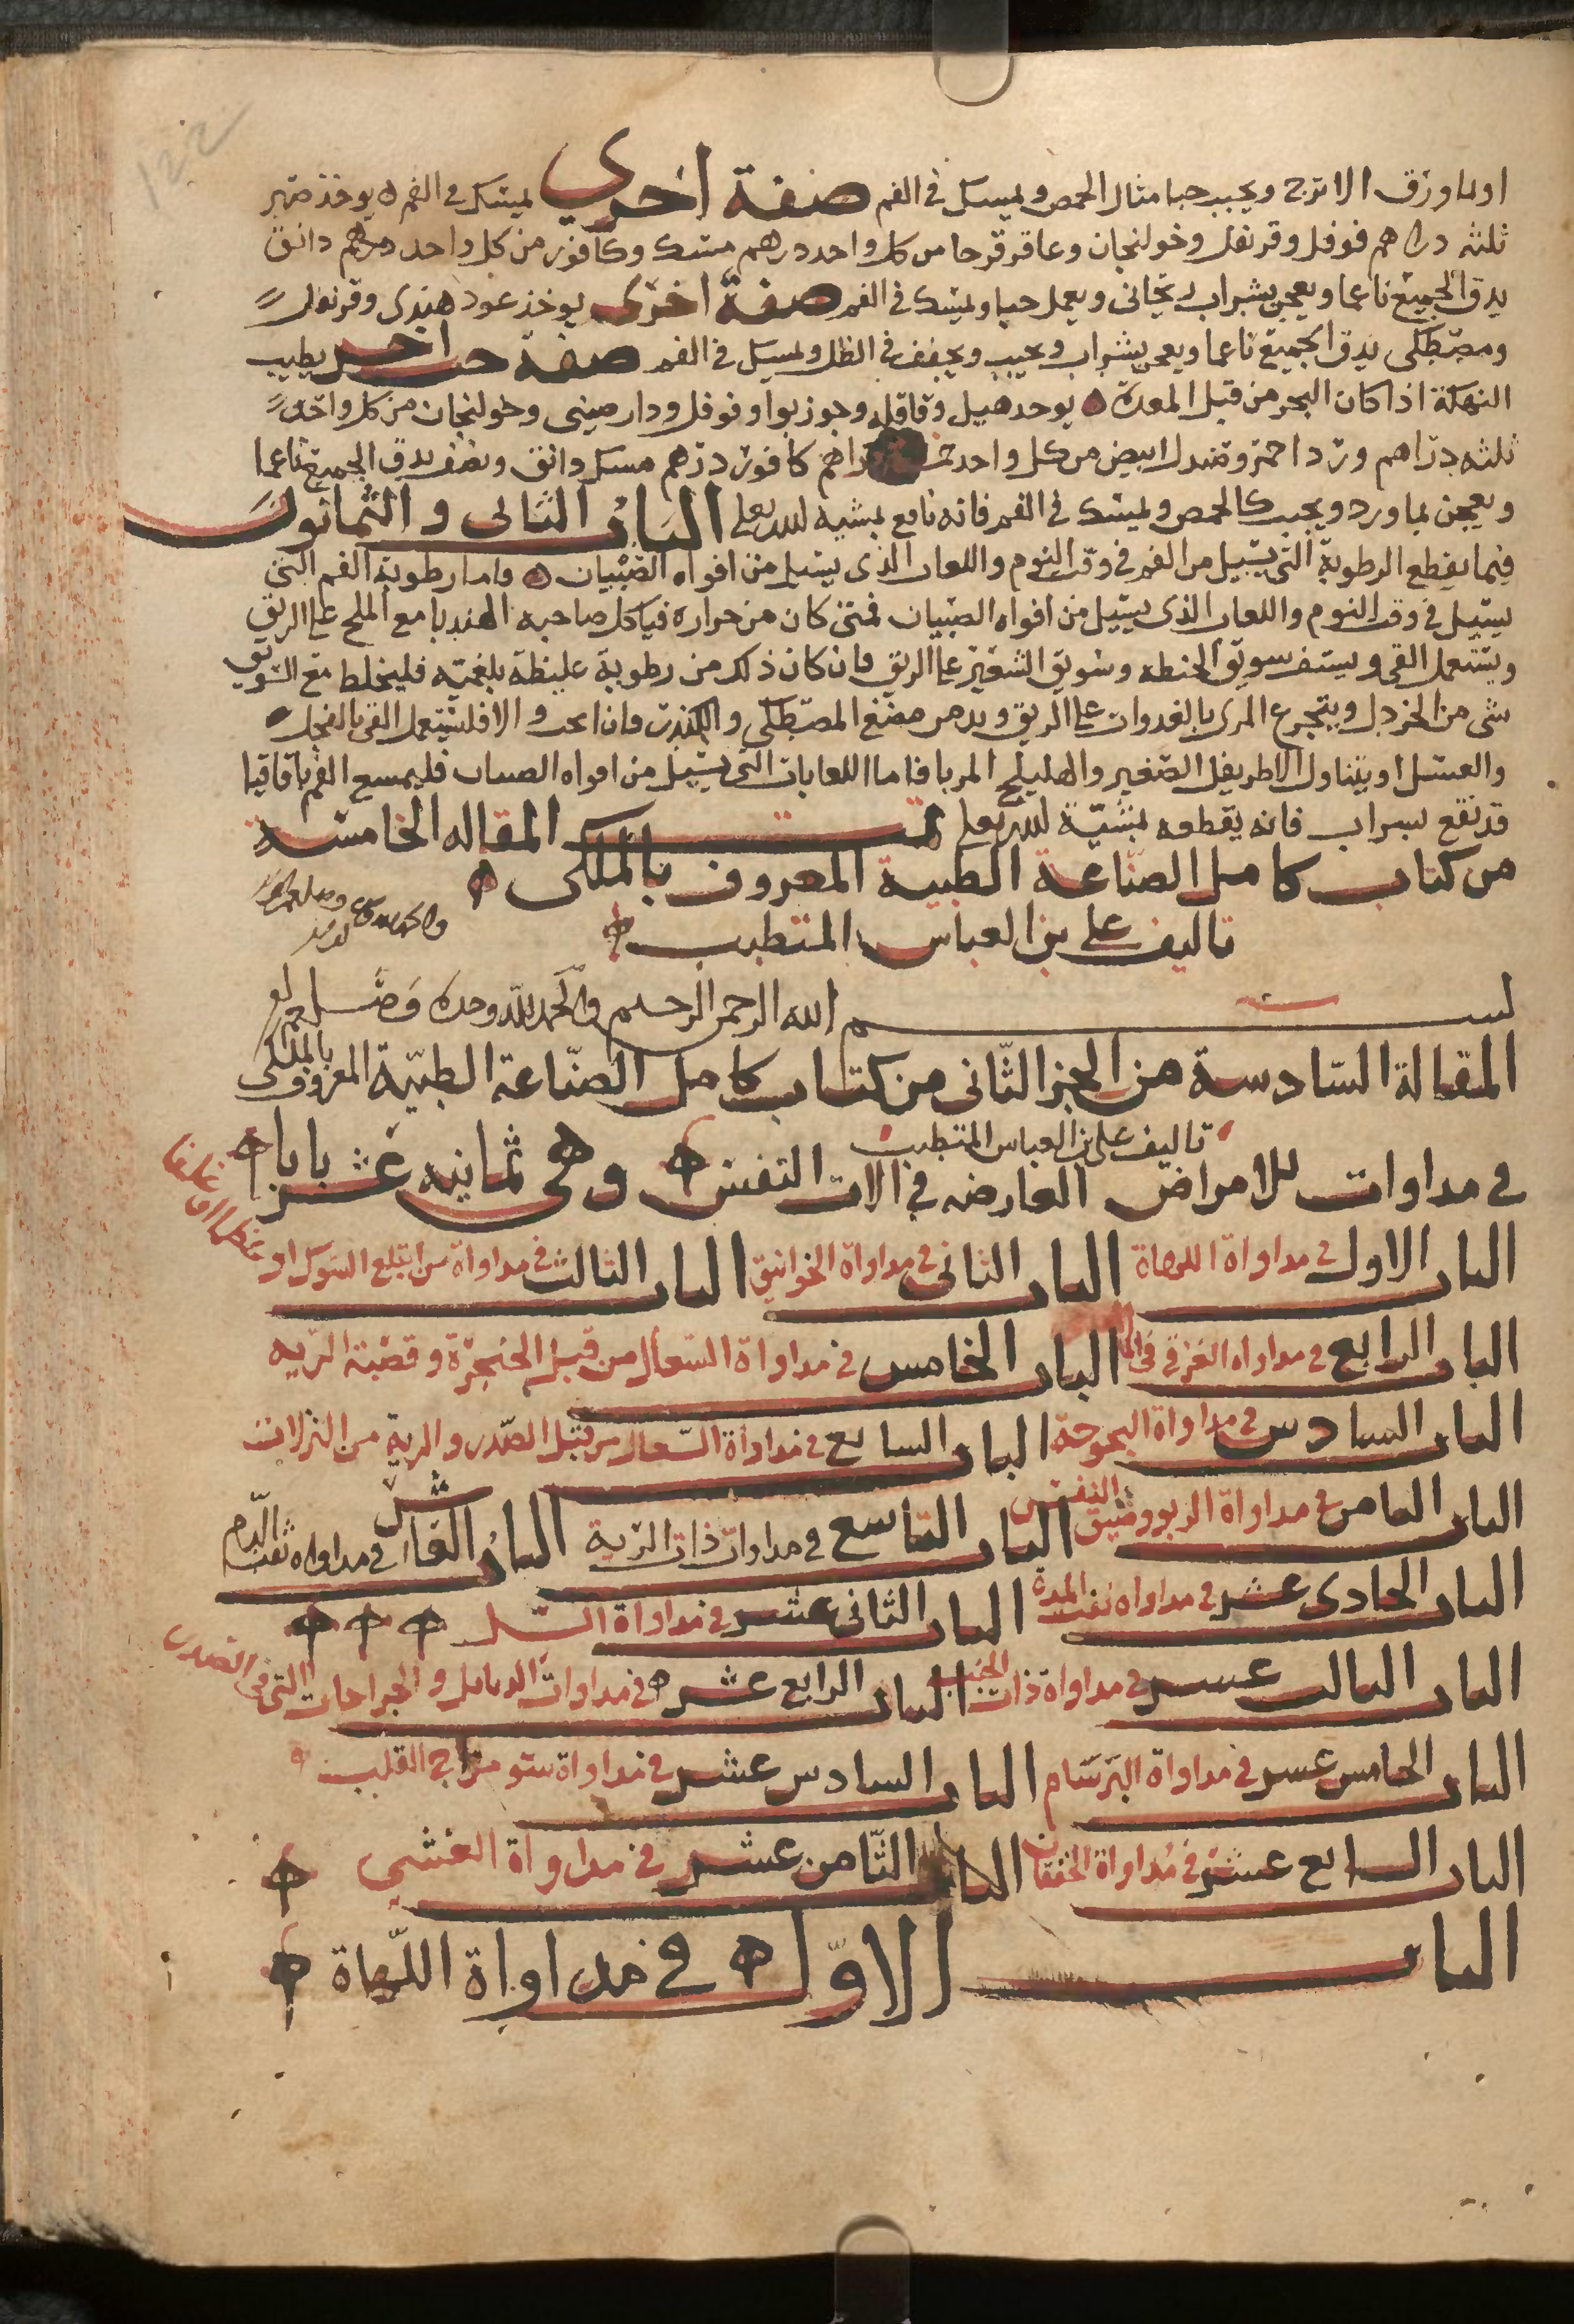 او بماورق الاترج ويحبب حبا مثال الحمص ويمسك في الفم صفة اخرى يمسك في الفم يوخذ صبر
ثلثه دراهم فوفل وقرنفل وخولنجان وعاقرقرحا من كل واحد درهم مسك وكافور من كل واحد درهم دانق
يدق الجميع ناعما ويعجن بشراب ريحاني ويعمل حبا ويمسك في الفم صفة اخرى يوخذ عود هندى وقرنفل
ومصطكى يدق الجميع ناعما ويعجن بشراب ويحبب ويجفف في الظل ويمسك في الفم صفة حب اخر يطيب
النهكة اذا كان البخر من قبل المعدة يوخذ هيل وقاقله وجوزبوا وفوفل ودارصينى وخولنجان من كل واحد
ثلثه دراهم ورد احمر وصندل ابيض من كل واحد دراهم كافور درهم مسك دانق ونصف يدق الجميع ناعما
ويعجن بماورد ويحبب كالحمص ويمسك في الفم فانه نافع بمشية الله تعلى الباب الثانى والثمانون
فيما يقطع الرطوبة التى تسيل من الفم في وقت النوم واللعاب الذى يسيل من افواه الصبيان واما رطوبة الفم التى
تسيل في وقت النوم واللعاب الذى يسيل من افواه الصبيان فمتى كان من حرارة فياكل صاحبه الهندبا مع الملح على الريق
ويستعمل القى ويستف سويق الحنطه وسويق الشعير على الريق فان كان ذلك من رطوبة غليظة بلغميه فليخلط مع السويق
شى من الخردل ويتجرع المرى بالغدوات على الريق ويدمن مضغ المصطكى والكندر فان انجب والا فليستعمل القى بالفجل
والعسل او يتناول الاطريفل الصغير والهليلج المربا فاما اللعابات التى تسيل من افواه الصبيان فليمسح الفم باقاقيا
قد نقع بشراب فانه يقطعه بمشية الله تعلى تمت المقاله الخامسه
من كتاب كامل الصناعة الطبية المعروف بالملكى
تاليف على بن العباس المتطبب
بسم الله الرحمن الرحيم والحمد لله وحده وصلى
المقالة السادسة من الجز الثانى من كتاب كامل الصناعة الطبية المعروف بالملكى
تاليف على بن العباس المتطبب
في مداوات للامراض العارضه في الات التنفس وهى ثمانيه عشر بابا
الباب الاول في مداواة اللهاة الباب الثانى في مداواة الخوانيق الباب الثالث في مداواة من ابتلع الشوك او عظما او علقا
الباب الرابع في مداواه الغرقى في الما الباب الخامس في مداواة السعال من قبل الحنجرة وقصبة الريه
الباب السادس في مداواة البحوحة الباب السابع في مداواة السعال من قبل الصدر والرية من النزلات
الباب الثامن في مداواة الربو وضيق النفس الباب التاسع في مداوات ذات الرية الباب العاشر في مداواه نفث الدم
الباب الحادى عشر في مداواه نفث المدة الباب الثانى عشر في مداواة السل
الباب الثالث عشر في مداواة ذات الجنب الباب الرابع عشر في مداوات الدبابل والجراحات التى في الصدر
الباب الخامس عشر في مداواة البرسام الباب السادس عشر في مداواة سو مزاج القلب
الباب السابع عشر في مداواة الخفقان الباب الثامن عشر في مداواة الغشى
الباب الاول في مداواة اللهاة